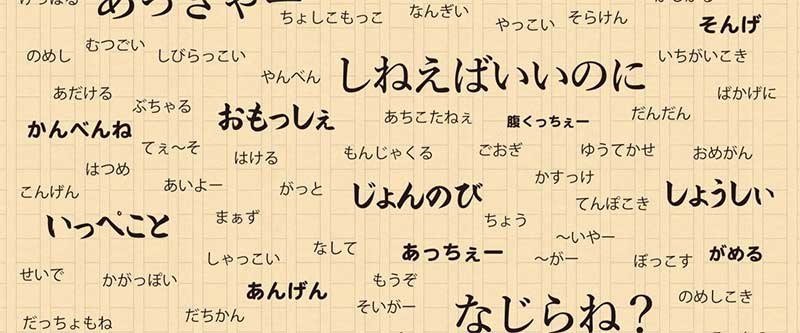 ちょしこもっこ
なんぎい
やっこい
そらけん
そんげ
のめし
むつごい
しびらっこい
やんべん
しねえばいいのに
いちがいこき
あだける
ぶちゃる
おもっしぇ
あちこたねぇ
腹くっちぇー
だんだん
ばかげに
かんべんね
てぇ〜そ
はける
もんじゃくる
ごおぎ
ゆうてかせ
おめがん
はつめ
こんげん
あいよー
がっと
じょんのび
かすっけ
てんぽこき
しょうしい
いっぺこと
まぁず
ちょう
〜いやー
しゃっこい
なして
あっちぇー
〜がー
ぼっこす
がめる
せいで
かがっぽい
あんげん
もうぞ
のめしこき
だっちょもね
だちかん
そいがー
なじらね？